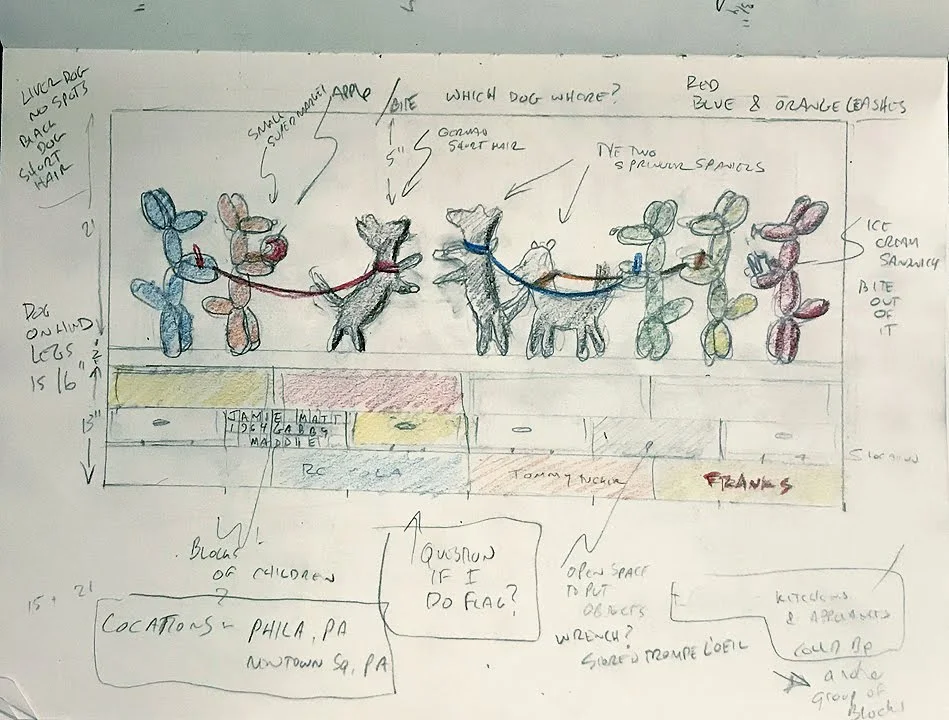 LIVER DOG
NO SPOTS
BLACK
DOG
SHORT
HAIR
SMALL
SUPERMARKET
APPLE
BITE
5"
WHICH DOG WHERE?
GERMAN
SHORT HAIR
RED
BLUE & ORANGE LEASHES
TYE TWO
SPRINGER SPANIELS
ICE
CREAM
SANDWICH
BITE
OUT
OF
IT
2'
DOG
ON HIND
LEGS
IS 16"
2"
13"
JAMIE MATT
1264 GABBY
MADDIE
RC COLA
TOMMY TUCKER
FRANKS
BLOCKS
OF CHILDREN
?
QUESTION
IF I
DO FLAG?
OPEN SPACE
TO PUT
OBJECTS
WRENCH?
STORED TROMPE L'OEIL
KITCHENS
& APPLIANCES
COULD BE
GROUP OF
BLOCKS
15 + 21
LOCATIONS - PHILA, PA
NEWTOWN SQ, PA